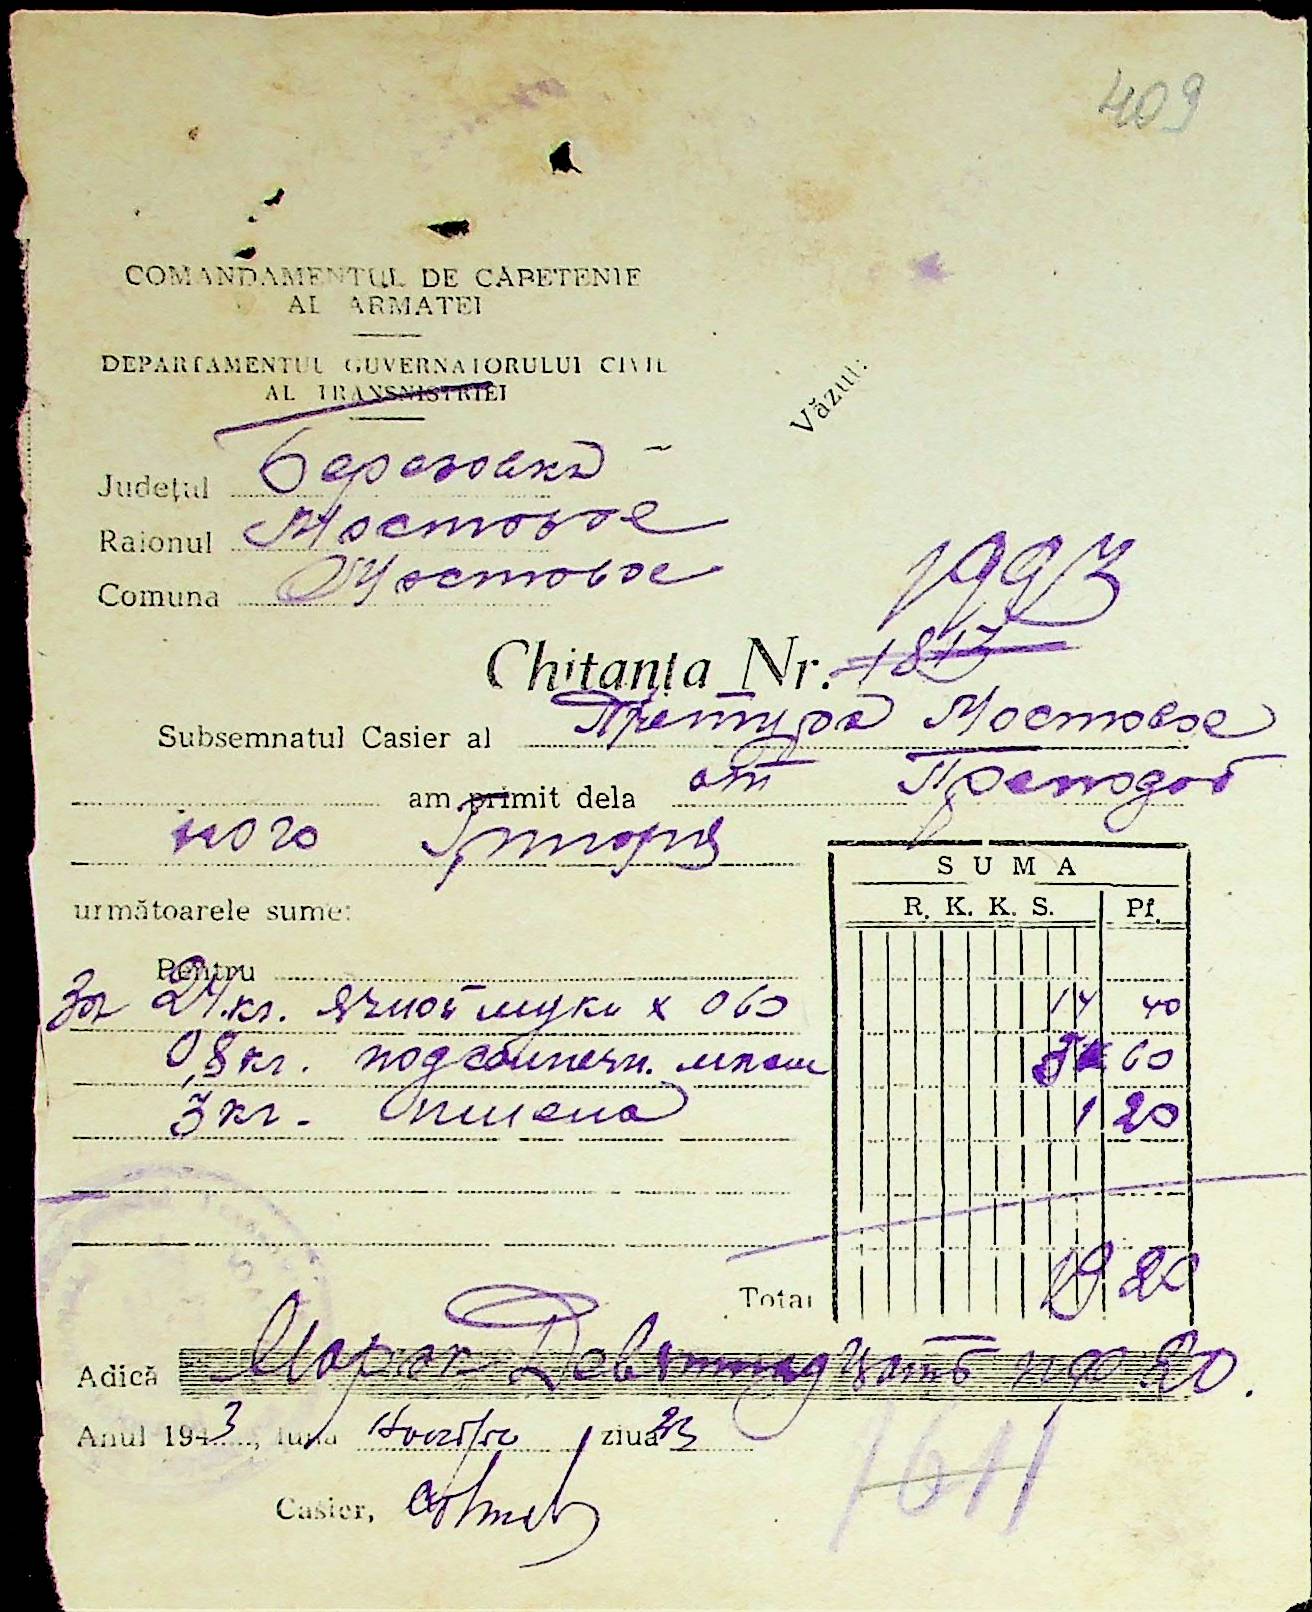 409
COMANDAMENTUL DE CAPETENIE
AL ARMATEI
DEPARTAMENTUL GUVERNATORULUI CIVIL
AL TRANSNISTRIEI
Văzut:
Județul Березовка
Raionul Мостовое
Comuna Мостовое
1993
Chitanța Nr. 1813
Subsemnatul Casier al Претура Мостовое
am primit dela от Преподоб
ного Григория
SUMA
R. K. K. S. Pf.
următoarele sume:
Pentru
За 24 кг. ячной муки х 060 14 40
0,8 кг. подсолнечн. 60
3 кг. пшена 1 20
Total 19 20
Adică Марок Девятнадцать пф 20.
Anul 1943, luna Ноября ziua 23
Casier,
1611